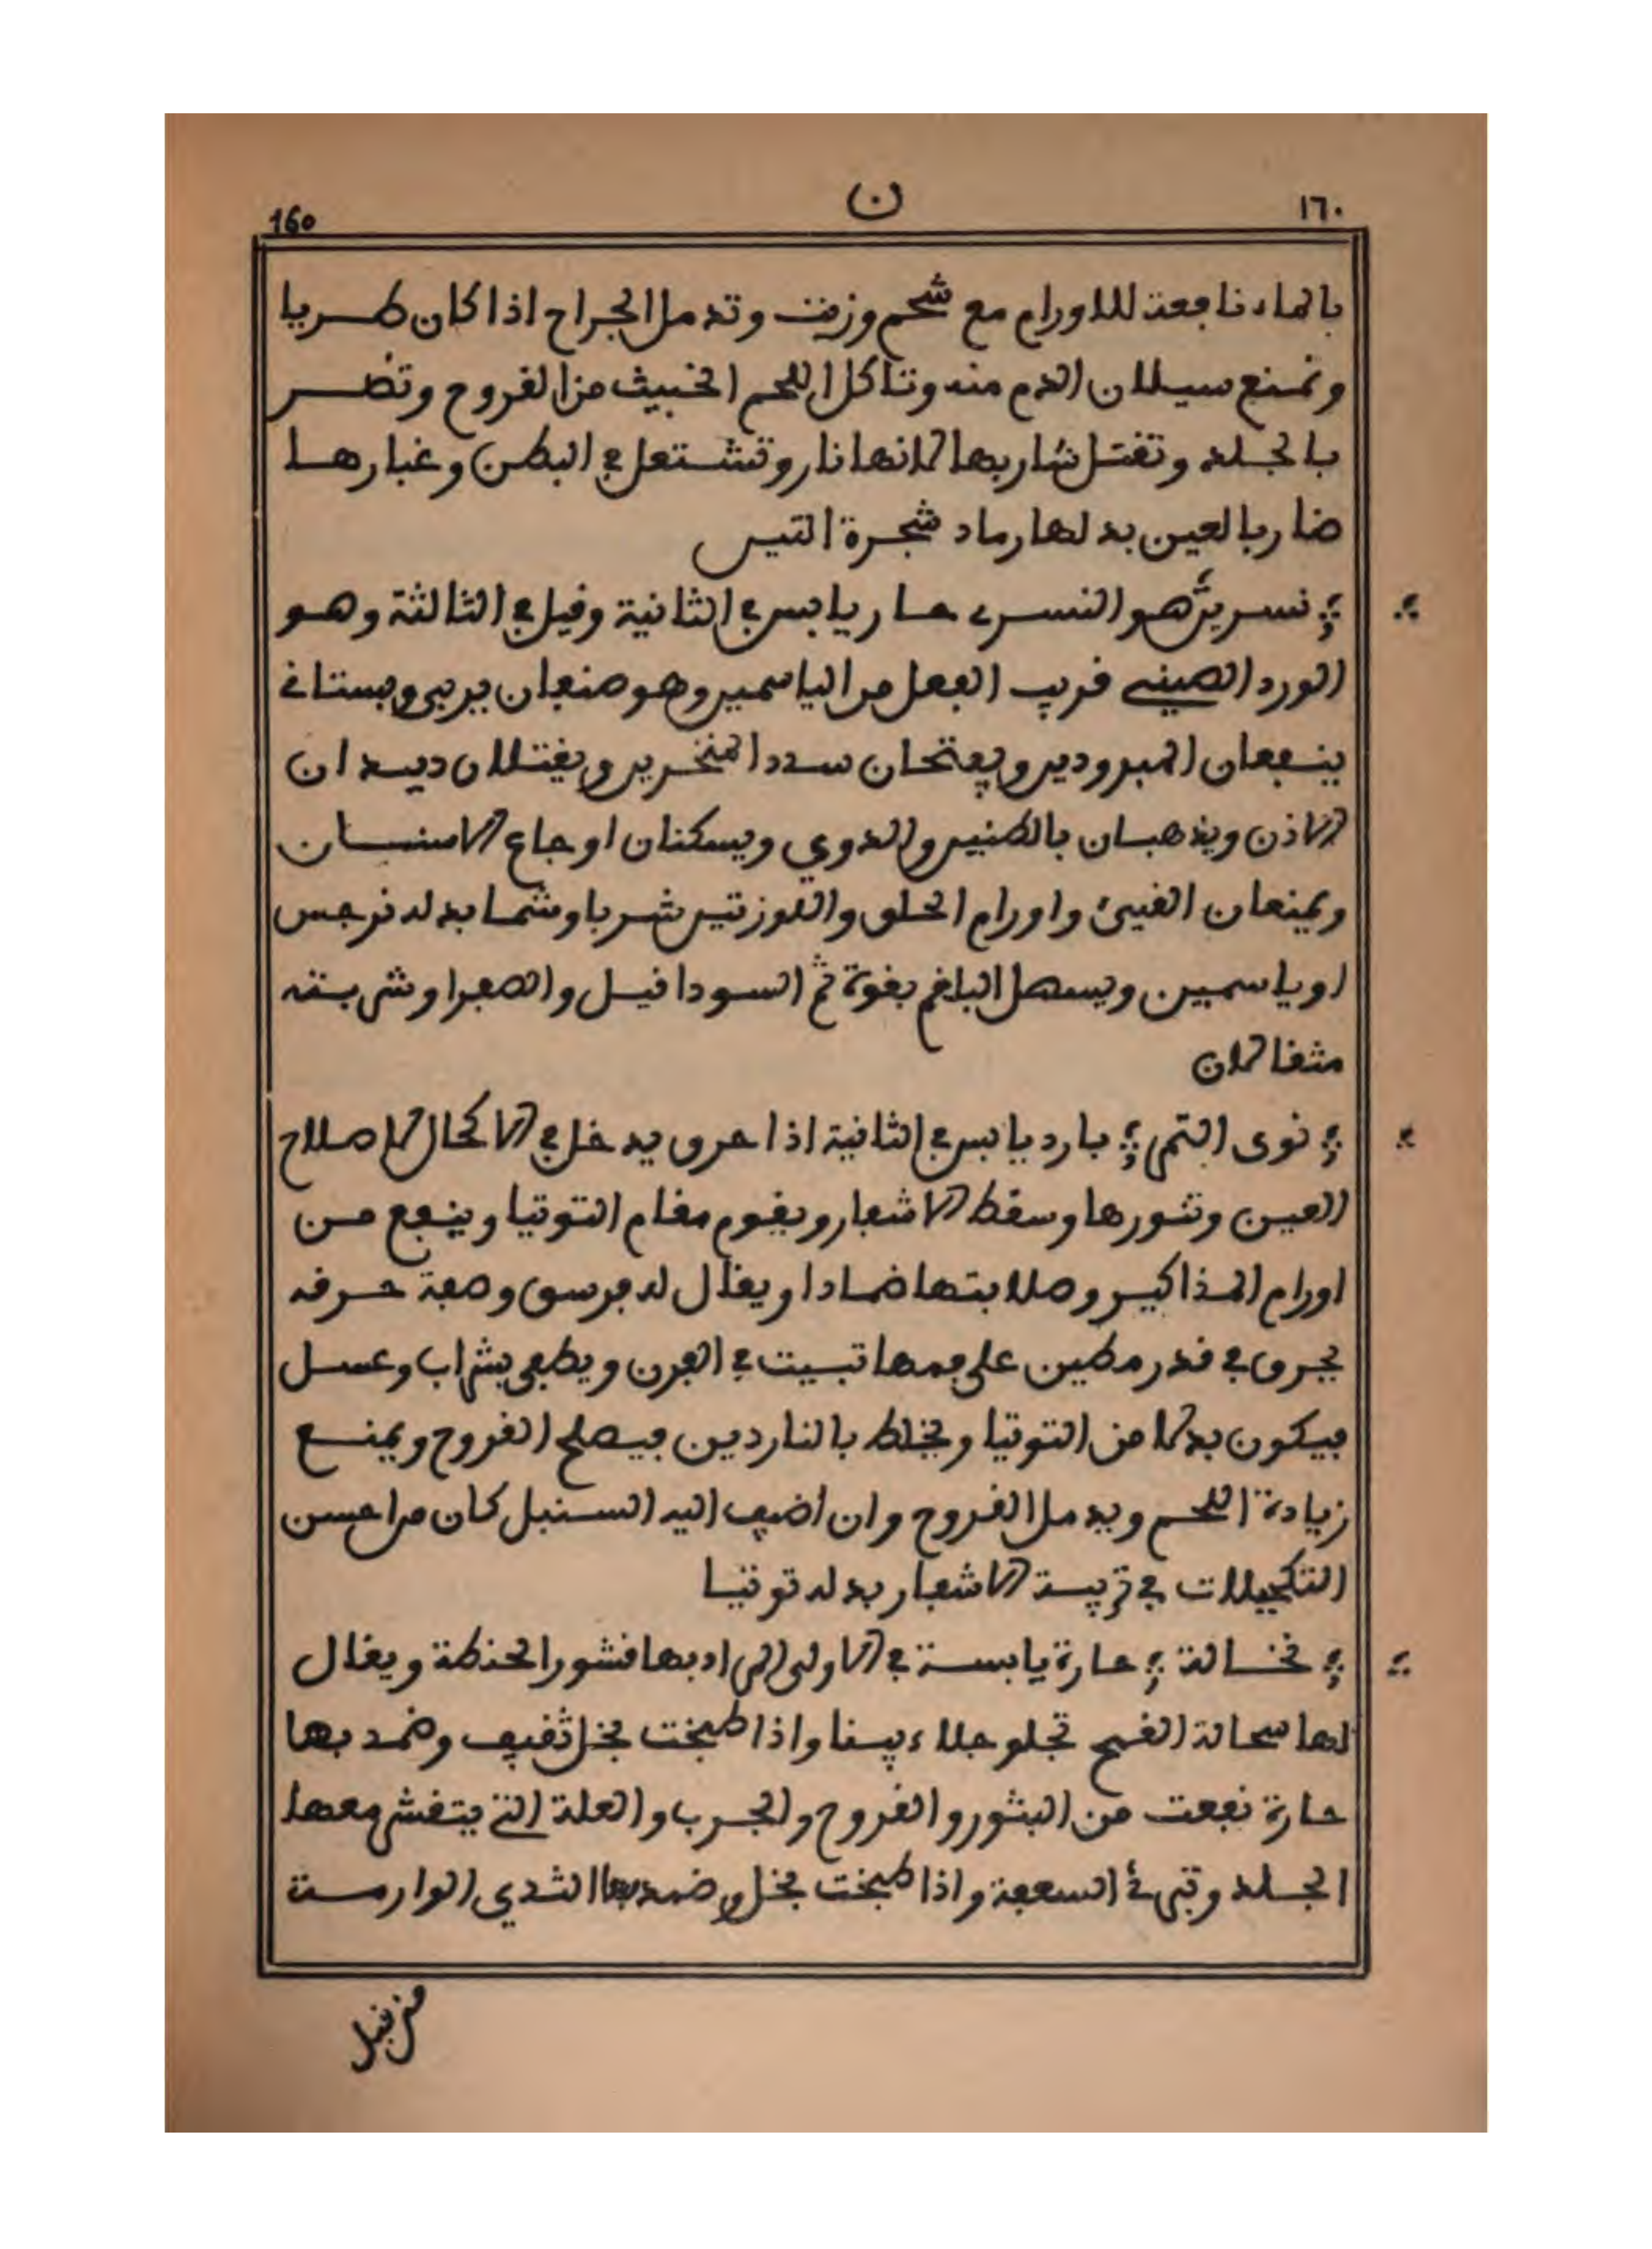 160
ن
١٦٠
بالماء نافعة للاورام مع شحم وزفت وتدمل الجراح اذا كان طريا
وتمنع سيلان الدم منه وتاكل اللحم الخبيث من القروح وتضر
بالجلد وتقتل شاربها لانها نار وتشتعل في البطن وغبارها
ضار بالعين بدلها رماد شجرة التيس
؞ نسرين هو النسري حار يابس في الثانية وقيل في الثالثة وهو
الورد الصيني قريب الفعل من الياسمين وهو صنفان بري وبستاني
ينفعان المبرودين ويفتحان سدد المنخرين ويقتلان ديدان
الاذن ويذهبان بالطنين والدوي ويسكنان اوجاع الاسنان
ويمنعان القيئ واورام الحلق واللوزتين شربا وشما بدله نرجس
او ياسمين ويسهل البلغم بقوة ثم السودا قيل والصفرا وشربته
مثقالان
؞ نوى التمر ؞ بارد يابس في الثانية اذا حرق يدخل في الاكحال لاصلاح
العين وثورها وسقط الاشعار ويقوم مقام التوتيا وينفع من
اورام المذاكير وصلابتها ضمادا ويقال له فرسق وصفة حرقه
يحرق في قدر مطين على فمها تبيت في الفرن ويطفى بشراب وعسل
فيكون بدلا من التوتيا ويخلط بالناردين فيصلح القروح ويمنع
زيادة اللحم ويدمل القروح وان اضيف اليه السنبل كان من احسن
التكحيلات في تربية الاشعار بدله توتيا
؞ نخالة ؞ حارة يابسة في الاولى المراد بها قشور الحنطة ويقال
لها سحالة القمح تجلو جلاء يسفا واذا طبخت بخل ثقيف وضمد بها
حارة نفعت من البثور والقروح والجرب والعلة التي يتقشر معها
الجلد وتبرئ السعفة واذا طبخت بخل وضمد بها الثدي الوارمة